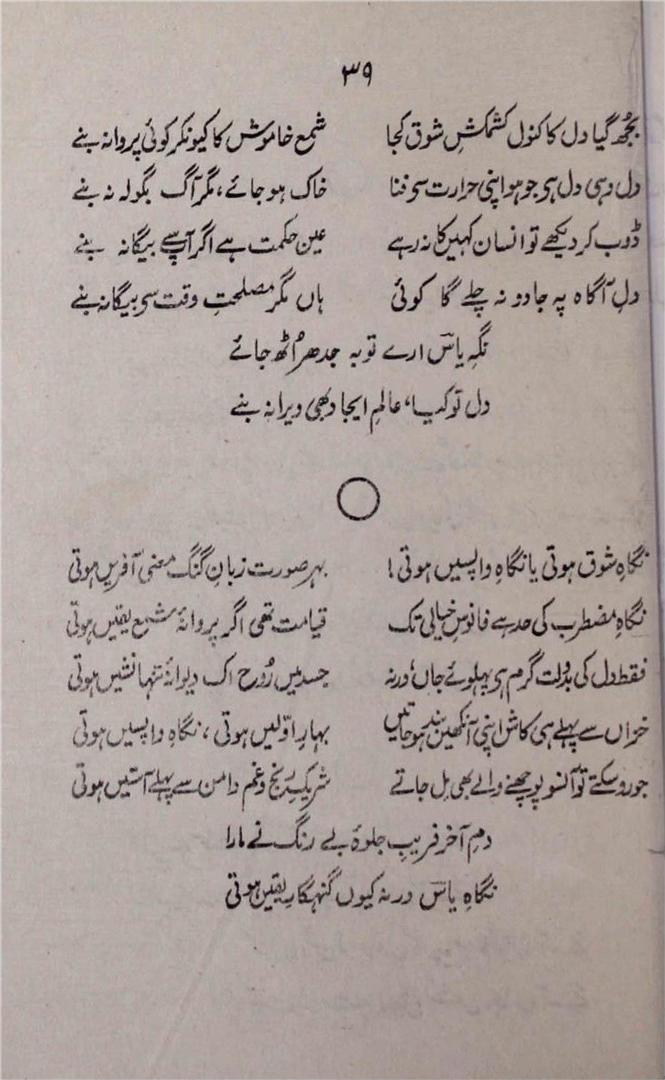 ۳۹
بجھ گیا دل کا کنول کشمکشِ شوق کجا شمع خاموش کا کیونکر کوئی پروانہ بنے
دل وہی دل ہی جو ہو اپنی حرارت سو فنا خاک ہو جائے، مگر آگ بگولہ نہ بنے
ڈوب کر دیکھے تو انسان کہیں کا نہ رہے عین حکمت ہے اگر آپ سے بیگانہ بنے
دلِ آگاہ پہ جادو نہ چلے گا کوئی ہاں مگر مصلحتِ وقت سو بیگانہ بنے
نگہِ یاسؔ ارے توبہ جدھر اُٹھ جائے
دل تو کیا، عالمِ ایجاد بھی ویرانہ بنے
نگاہِ شوق ہوتی یا نگاہِ واپسیں ہوتی! بہر صورت زبانِ گنگ معنی آفریں ہوتی
نگاہِ مضطرب کی حد ہے فانوسِ خیالی تک قیامت تھی اگر پروانۂ شمع یقیں ہوتی
فقط دل کی بدولت گرم ہی پہلوئے جاں ورنہ جسد میں رُوح اک دیوانۂ تنہا نشیں ہوتی
خزاں سے پہلے ہی کاش اپنی آنکھیں بند ہو جاتیں بہارِ اوّلیں ہوتی، نگاہِ واپسیں ہوتی
جو رو سکتے تو آنسو پوچھنے والے بھی مل جاتے شریکِ رنج و غم دامن سے پہلے آستیں ہوتی
دمِ آخر فریبِ جلوۂ بے رنگ نے مارا
نگاہِ یاسؔ ورنہ کیوں گنہگارِ یقیں ہوتی